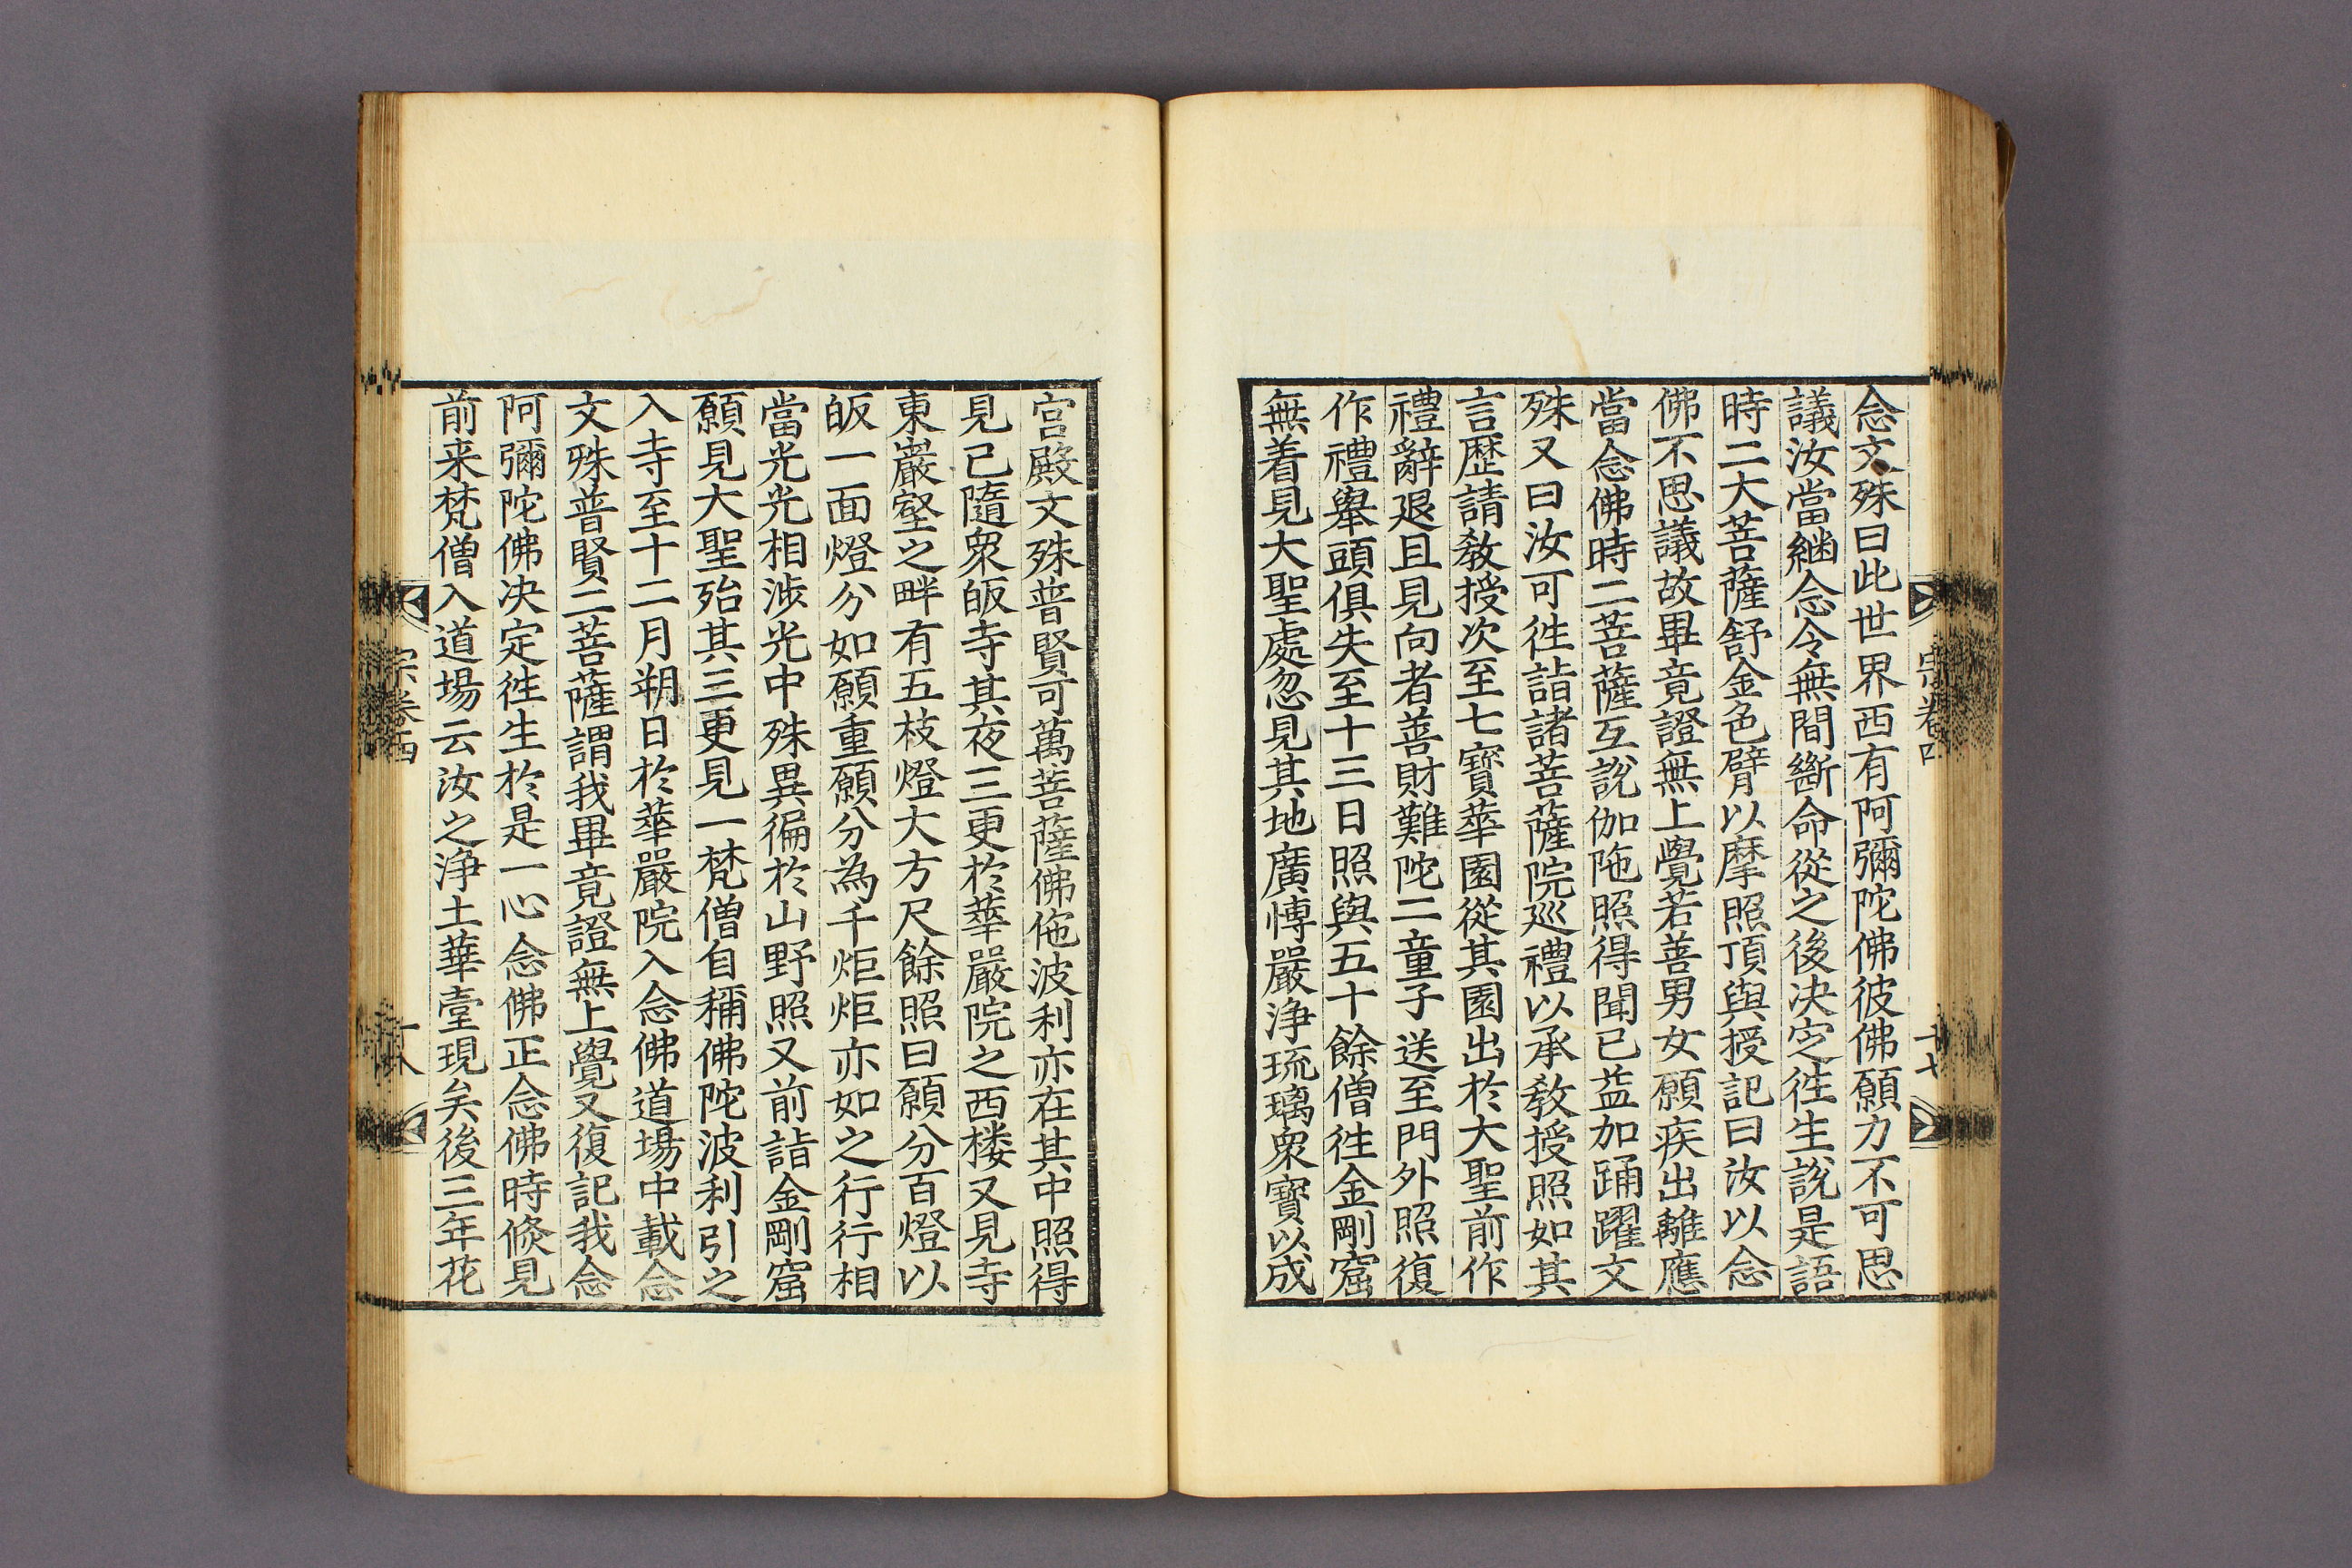 念文殊曰此世界西有阿彌陀佛彼佛願力不可思
議汝當継念令無間斷命從之後决定徃生說是語
時二大菩薩舒金色臂以摩照頂與授記曰汝以念
佛不思議故畢竟證無上覺若善男女願疾出離應
當念佛時二菩薩互說伽陁照得聞已益加踊躍文
殊又曰汝可徃詣諸菩薩院廵禮以承教授照如其
言歷請教授次至七寳華園從其園出於大聖前作
禮辭退且見向者善財難陀二童子送至門外照復
作禮舉頭俱失至十三日照與五十餘僧徃金剛窟
無着見大聖處忽見其地廣博嚴淨琉璃衆寳以成
宗卷四
十七
宫殿文殊普賢可萬菩薩佛佗波利亦在其中照得
見已隨衆皈寺其夜三更於華嚴院之西楼又見寺
東巖壑之畔有五枝燈大方尺餘照曰願分百燈以
皈一面燈分如願重願分為千炬炬亦如之行行相
當光光相涉光中殊異徧於山野照又前詣金剛窟
願見大聖殆其三更見一梵僧自稱佛陀波利引之
入寺至十二月朔日於華嚴院入念佛道場中載念
文殊普賢二菩薩謂我畢竟證無上覺又復記我念
阿彌陀佛决定徃生於是一心念佛正念佛時倏見
前来梵僧入道場云汝之淨土華臺現矣後三年花
宗卷四
十八